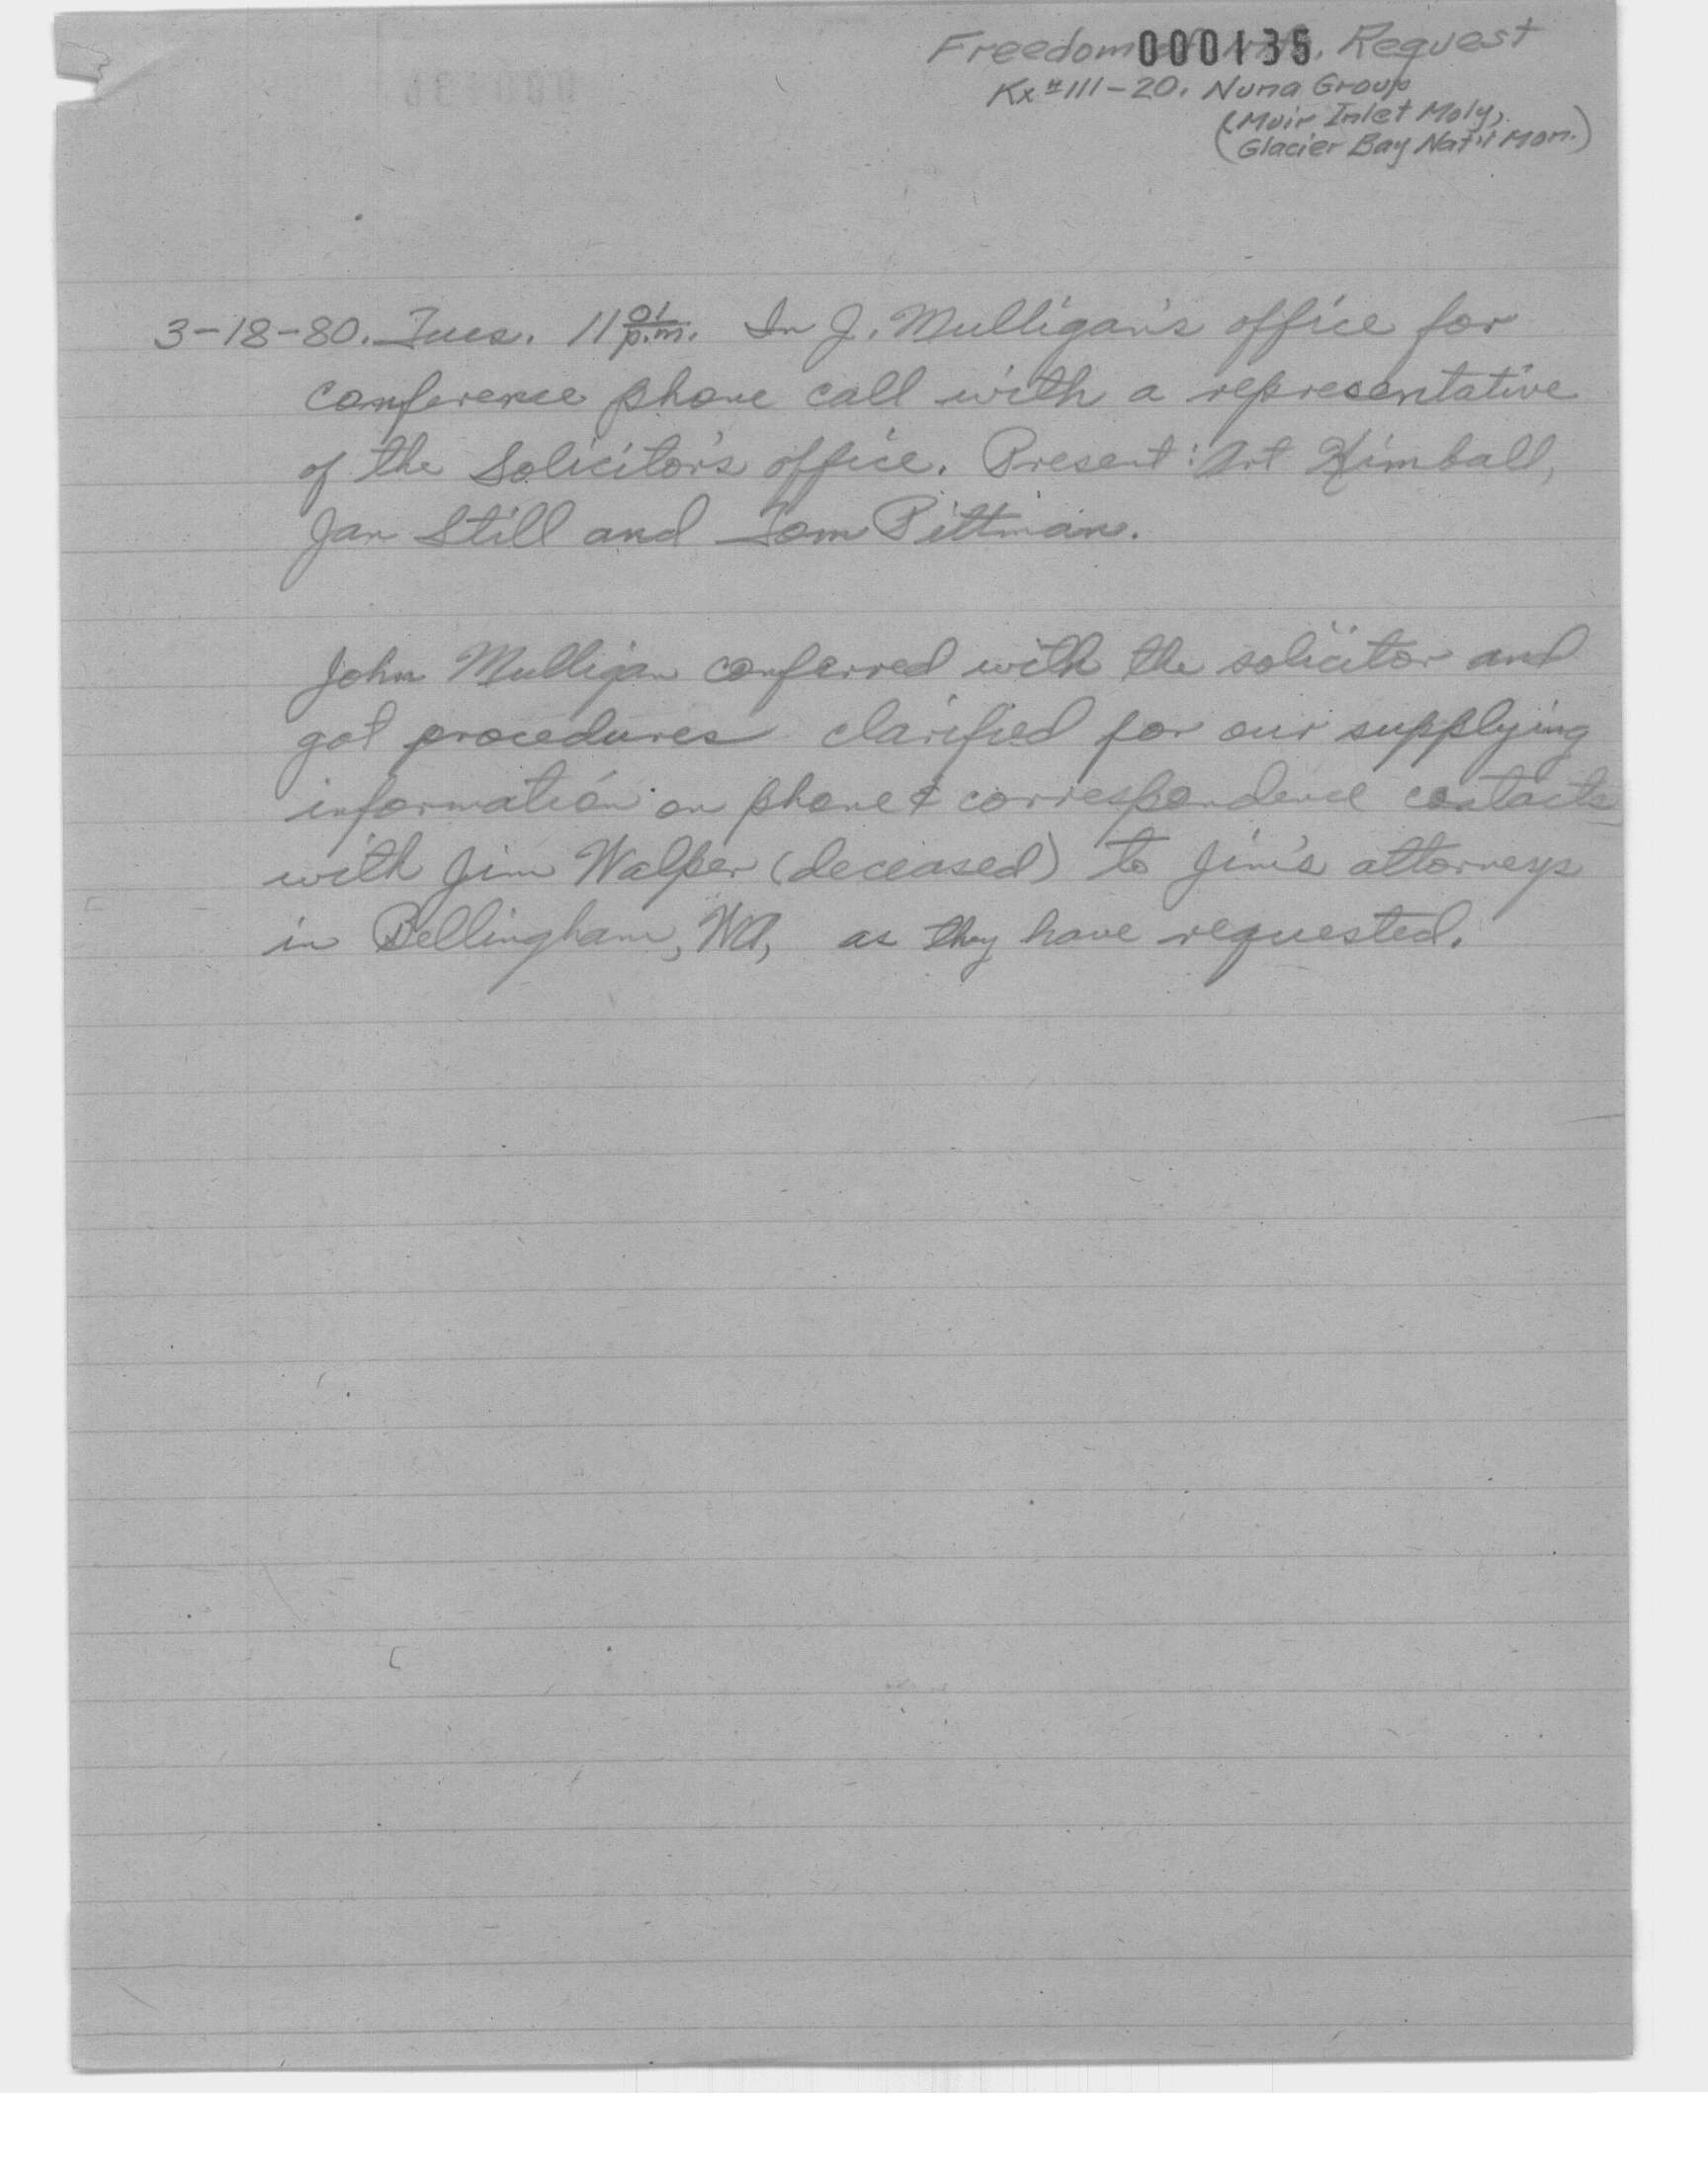 Freedom of Info. Request
000135
Kx #111-20. Nuna Group
(Muir Inlet Moly,
Glacier Bay Nat'l Mon.)
3-18-80. Tues. 11 01 p.m. In J. Mulligan's office for
conference phone call with a representative
of the Solicitor's office. Present: Art Kimball,
Jan Still and Tom Pittman.
John Mulligan conferred with the solicitor and
got procedures clarified for our supplying
information on phone & correspondence contacts
with Jim Walper (deceased) to Jim's attorneys
in Bellingham, WA, as they have requested.